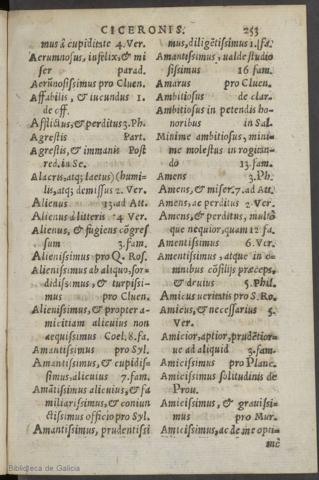 CICERONIS. 253
mus à cupiditate 4. Ver.
Aerumnosus, infelix, & mi
ser parad.
Aerũnosissimus pro Cluen.
Affabilis, & iucundus 1.
de off.
Afflictus, & perditus 3. Ph.
Agrestis Part.
Agrestis, & immanis Post
red. in Se.
Alacris, atq; laetus) (humi-
lis, atq; demissus 2. Ver.
Alienus 13. ad Att.
Alienus à litteris 4 Ver.
Alienus, & fugiens cõgres
sum 3. fam.
Alienissimus pro Q. Ros.
Alienissimus ab aliquo, sor-
didissimus, & turpissi-
mus pro Cluen.
Alienissimus, & propter a-
micitiam alicuius non
aequissimus Coel. 8. fa.
Amantissimus pro Syl.
Amantissimus, & cupidis-
simus alicuius 7. fam.
Amãtissimus alicuius, & fa
miliarissimus, & coniun
ctissimus officio pro Syl.
Amantissimus, prudentissi
mus, diligẽtissimus 1. ɿ. fa.
Amantissimus, ualde studio
sissimus 16 fam.
Amarus pro Cluen.
Ambitiosus de clar.
Ambitiosus in petendis ho-
noribus in Sal.
Minime ambitiosus, mini-
me molestus in rogitan-
do 13. fam.
Amens 3. Ph.
Amens, & miser. 7. ad Att.
Amens, ac perditus 2 Ver.
Amens, & perditus, multò
que nequior, quam 12 fa.
Amentissimus 6. Ver.
Amentissimus, atque in o-
mnibus cõsilijs præceps,
& deuius 5. Phil.
Amicus ueritatis pro S. Ro.
Amicus, & necessarius 5.
Ver.
Amicior, aptior, prudẽtior-
ue ad aliquid 3. fam.
Amicissimus pro Planc.
Amicissimus solitudinis de
Prou.
Amicissimus, & grauissi-
mus pro Mur.
Amicissimus, ac de me opti-
mè
Biblioteca de Galicia